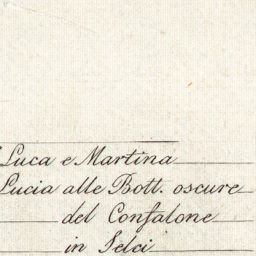 Luca e Martina
Lucia alle Bott. oscure
del Confalone
in Selci